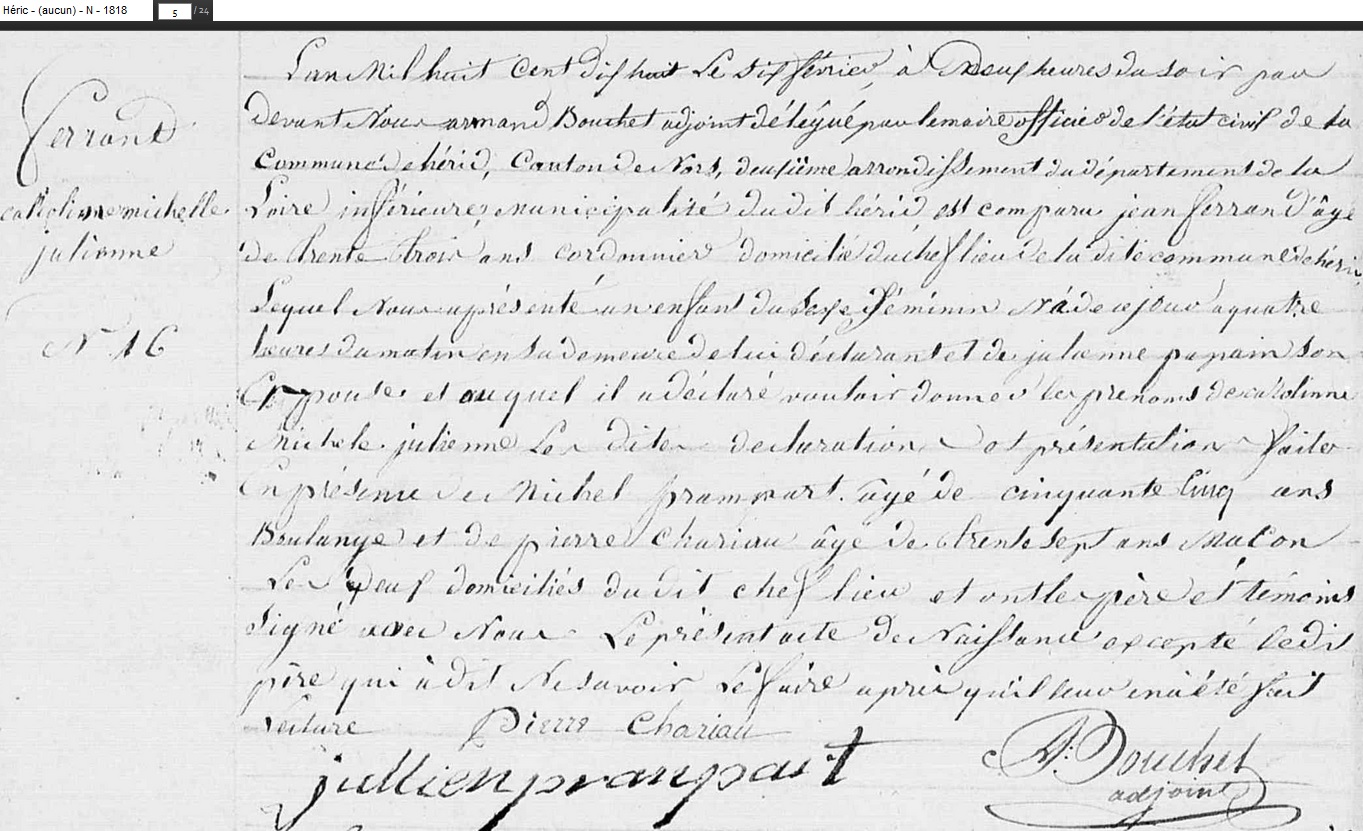 Héric - (aucun) - N - 1818 5 / 24
Ferrand
catholinne michelle
julienne
N 16
L'an Mil huit Cent dix huit Le six février à Neuf heures du soir par
Devant Nous armand Bouchet adjoint délégué par le maire officier de l'état civil de la
Commune de héric, Canton de Nors, deuxième arrondissement du département de la
Loire inférieure, Municipalité du dit héric est comparu jean ferrand âgé
de trente trois ans cordonnier domicilié du chef lieu de la dite commune de héric
Lequel Nous a présenté un enfant du sexe féminin Né de ce jour a quatre
heures du matin en sa demeure de lui déclarant et de julienne papain son
Epouse et auquel il a déclaré vouloir donner les prenoms de catolinne
Michele julienne Les dites declaration et présentation faite
En présence de Michel prampart. âgé de cinquante cinq ans
Boulange et de pierre Chariau âgé de trente sept ans Macon
Les deux domiciliés du dit chef lieu et ont les père et témoins
Signé avec Nous Le présent acte de Naissance excepté le dit
père qui a dit Ne savoir Le faire après qu'il leur en a été fait
Lecture Pierre Chariau
jullien prampart
A: Bouchet
adjoint